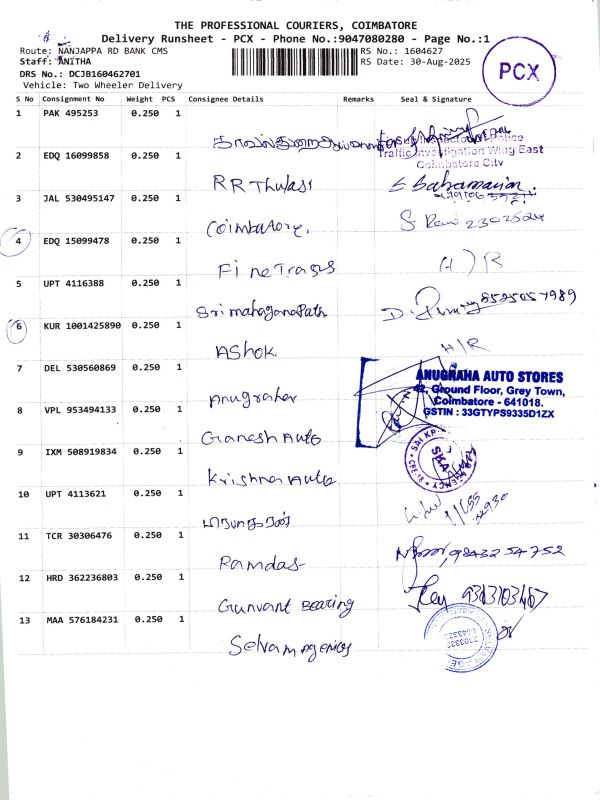 THE PROFESSIONAL COURIERS, COIMBATORE
Delivery Runsheet - PCX - Phone No.:9047080280 - Page No.:1
Route: NANJAPPA RD BANK CMS
RS No.: 1604627
Staff: ANITHA
RS Date: 30-Aug-2025
DRS No.: DCJB160462701
Vehicle: Two Wheeler Delivery
PCX
S No Consignment No Weight PCS Consignee Details Remarks Seal & Signature
1 PAK 495253 0.250 1
Traffic Investigation Wing East
Coimbatore City
2 EDQ 16099858 0.250 1
RR Thulasi
3 JAL 530495147 0.250 1
Coimbatore.
4 EDQ 15099478 0.250 1
H/R
5 UPT 4116388 0.250 1
Sri mahaganapath
6 KUR 1001425890 0.250 1
Ashok.
H/R
7 DEL 530560869 0.250 1
ANUGRAHA AUTO STORES
Ground Floor, Grey Town,
Coimbatore - 641018.
GSTIN : 33GTYPS9335D1ZX
8 VPL 953494133 0.250 1
Ganesh Auto
9 IXM 508919834 0.250 1
Krishna Auto
10 UPT 4113621 0.250 1
11 TCR 30306476 0.250 1
Ramdas
98432 54752
12 HRD 362236803 0.250 1
Gunvant Bearing
13 MAA 576184231 0.250 1
Selvam agencies